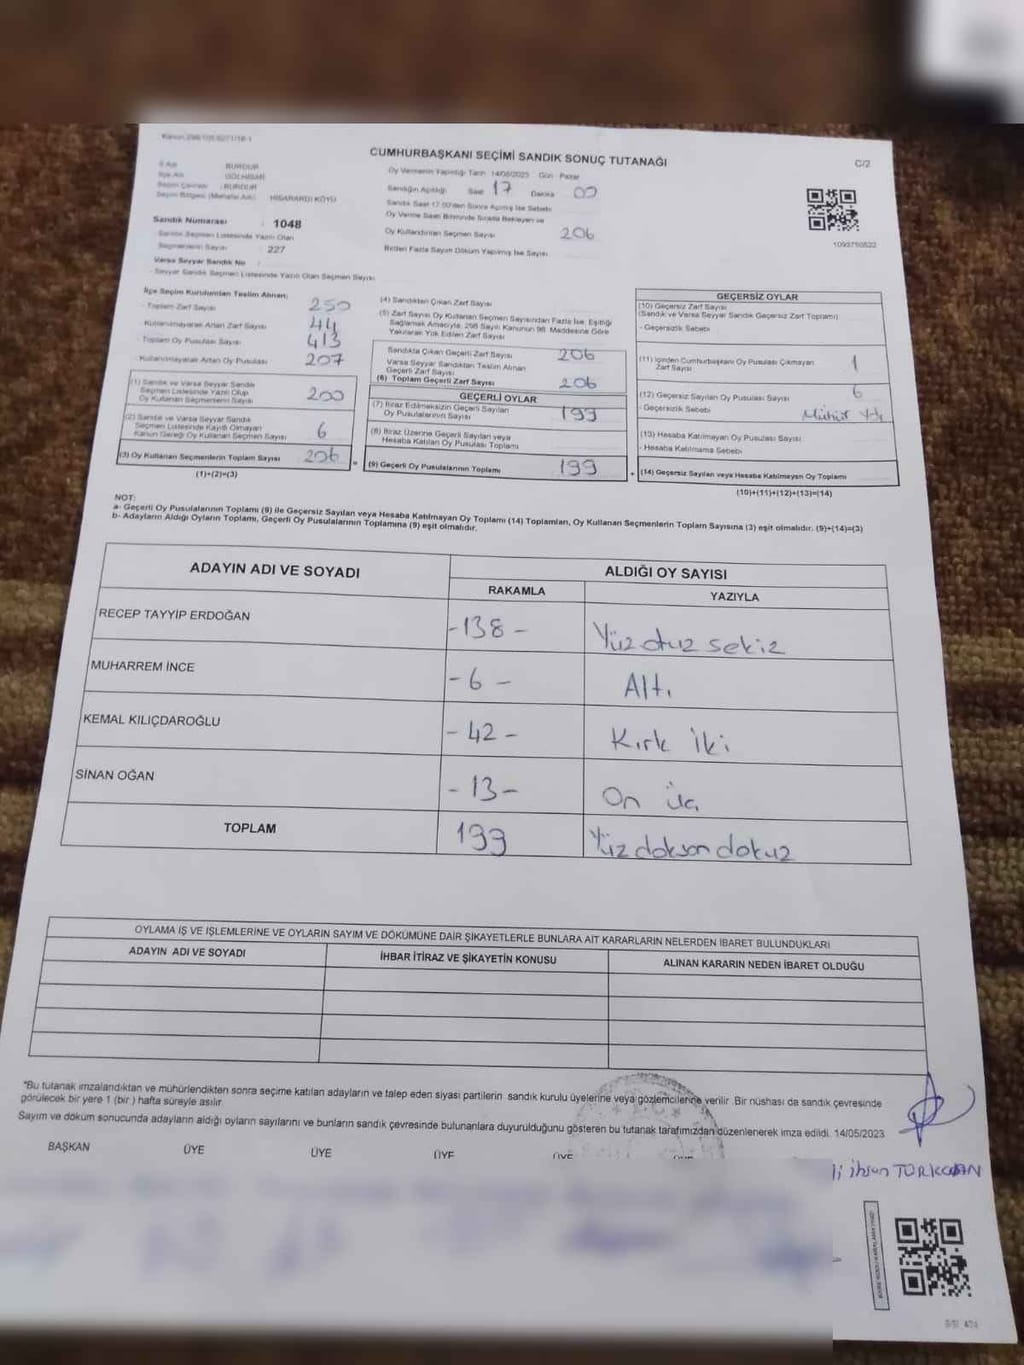 CUMHURBAŞKANI SEÇİMİ SANDIK SONUÇ TUTANAĞI
C/2
İl Adı : BURDUR
İlçe Adı : GÖLHİSAR
Seçim Çevresi : BURDUR
Seçim Bölgesi (Mahalle Adı) : HİSARARDI KÖYÜ
Sandık Numarası : 1048
Sandık Seçmen Listesinde Yazılı Olan
Seçmenlerin Sayısı : 227
Varsa Seyyar Sandık No
- Seyyar Sandık Seçmen Listesinde Yazılı Olan Seçmen Sayısı
Oy Vermenin Yapıldığı Tarih 14/05/2023 Gün Pazar
Sandığın Açıldığı Saat 17 Dakika 00
Sandık Saat 17.00'den Sonra Açılmış İse Sebebi
Oy Verme Saati Bitiminde Sırada Bekleyen ve
Oy Kullandırılan Seçmen Sayısı 206
Birden Fazla Sayım Döküm Yapılmış İse Sayısı
1093750522
İlçe Seçim Kurulundan Teslim Alınan;
- Toplam Zarf Sayısı 250
- Kullanılmayarak Artan Zarf Sayısı 44
- Toplam Oy Pusulası Sayısı 413
- Kullanılmayarak Artan Oy Pusulası 207
(1) Sandık ve Varsa Seyyar Sandık
Seçmen Listesinde Yazılı Olup
Oy Kullanan Seçmenlerin Sayısı 200
(2) Sandık ve Varsa Seyyar Sandık
Seçmen Listesinde Kayıtlı Olmayan
Kanun Gereği Oy Kullanan Seçmen Sayısı 6
(3) Oy Kullanan Seçmenlerin Toplam Sayısı 206
(1)+(2)=(3)
(4) Sandıktan Çıkan Zarf Sayısı
(5) Zarf Sayısı Oy Kullanan Seçmen Sayısından Fazla İse, Eşitliği
Sağlamak Amacıyla, 298 Sayılı Kanunun 98. Maddesine Göre
Yakılarak Yok Edilen Zarf Sayısı
Sandıkta Çıkan Geçerli Zarf Sayısı 206
Varsa Seyyar Sandıktan Teslim Alınan
Geçerli Zarf Sayısı
(6) Toplam Geçerli Zarf Sayısı 206
GEÇERLİ OYLAR
(7) İtiraz Edilmeksizin Geçerli Sayılan
Oy Pusulalarının Sayısı 199
(8) İtiraz Üzerine Geçerli Sayılan veya
Hesaba Katılan Oy Pusulası Toplamı
(9) Geçerli Oy Pusulalarının Toplamı 199
GEÇERSİZ OYLAR
(10) Geçersiz Zarf Sayısı
(Sandık ve Varsa Seyyar Sandık Geçersiz Zarf Toplamı)
- Geçersizlik Sebebi
(11) İçinden Cumhurbaşkanı Oy Pusulası Çıkmayan
Zarf Sayısı 1
(12) Geçersiz Sayılan Oy Pusulası Sayısı 6
- Geçersizlik Sebebi Mühür
(13) Hesaba Katılmayan Oy Pusulası Sayısı
- Hesaba Katılmama Sebebi
(14) Geçersiz Sayılan veya Hesaba Katılmayan Oy Toplamı
(10)+(11)+(12)+(13)=(14)
NOT:
a- Geçerli Oy Pusulalarının Toplamı (9) ile Geçersiz Sayılan veya Hesaba Katılmayan Oy Toplamı (14) Toplamları, Oy Kullanan Seçmenlerin Toplam Sayısına (3) eşit olmalıdır. (9)+(14)=(3)
b- Adayların Aldığı Oyların Toplamı, Geçerli Oy Pusulalarının Toplamına (9) eşit olmalıdır.
ADAYIN ADI VE SOYADI ALDIĞI OY SAYISI
RAKAMLA YAZIYLA
RECEP TAYYİP ERDOĞAN -138- Yüz otuz sekiz
MUHARREM İNCE -6- Altı
KEMAL KILIÇDAROĞLU -42- Kırk iki
SİNAN OĞAN -13- On üç
TOPLAM 199 Yüz doksan dokuz
OYLAMA İŞ VE İŞLEMLERİNE VE OYLARIN SAYIM VE DÖKÜMÜNE DAİR ŞİKAYETLERLE BUNLARA AİT KARARLARIN NELERDEN İBARET BULUNDUKLARI
ADAYIN ADI VE SOYADI İHBAR İTİRAZ VE ŞİKAYETİN KONUSU ALINAN KARARIN NEDEN İBARET OLDUĞU
*Bu tutanak imzalandıktan ve mühürlendikten sonra seçime katılan adayların ve talep eden siyasi partilerin sandık kurulu üyelerine veya gözlemcilerine verilir. Bir nüshası da sandık çevresinde
görülecek bir yere 1 (bir) hafta süreyle asılır.
Sayım ve döküm sonucunda adayların aldığı oyların sayılarını ve bunların sandık çevresinde bulunanlara duyurulduğunu gösteren bu tutanak tarafımızdan düzenlenerek imza edildi. 14/05/2023
BAŞKAN ÜYE ÜYE ÜYE ÜYE
İhsan TÜRKDOĞAN